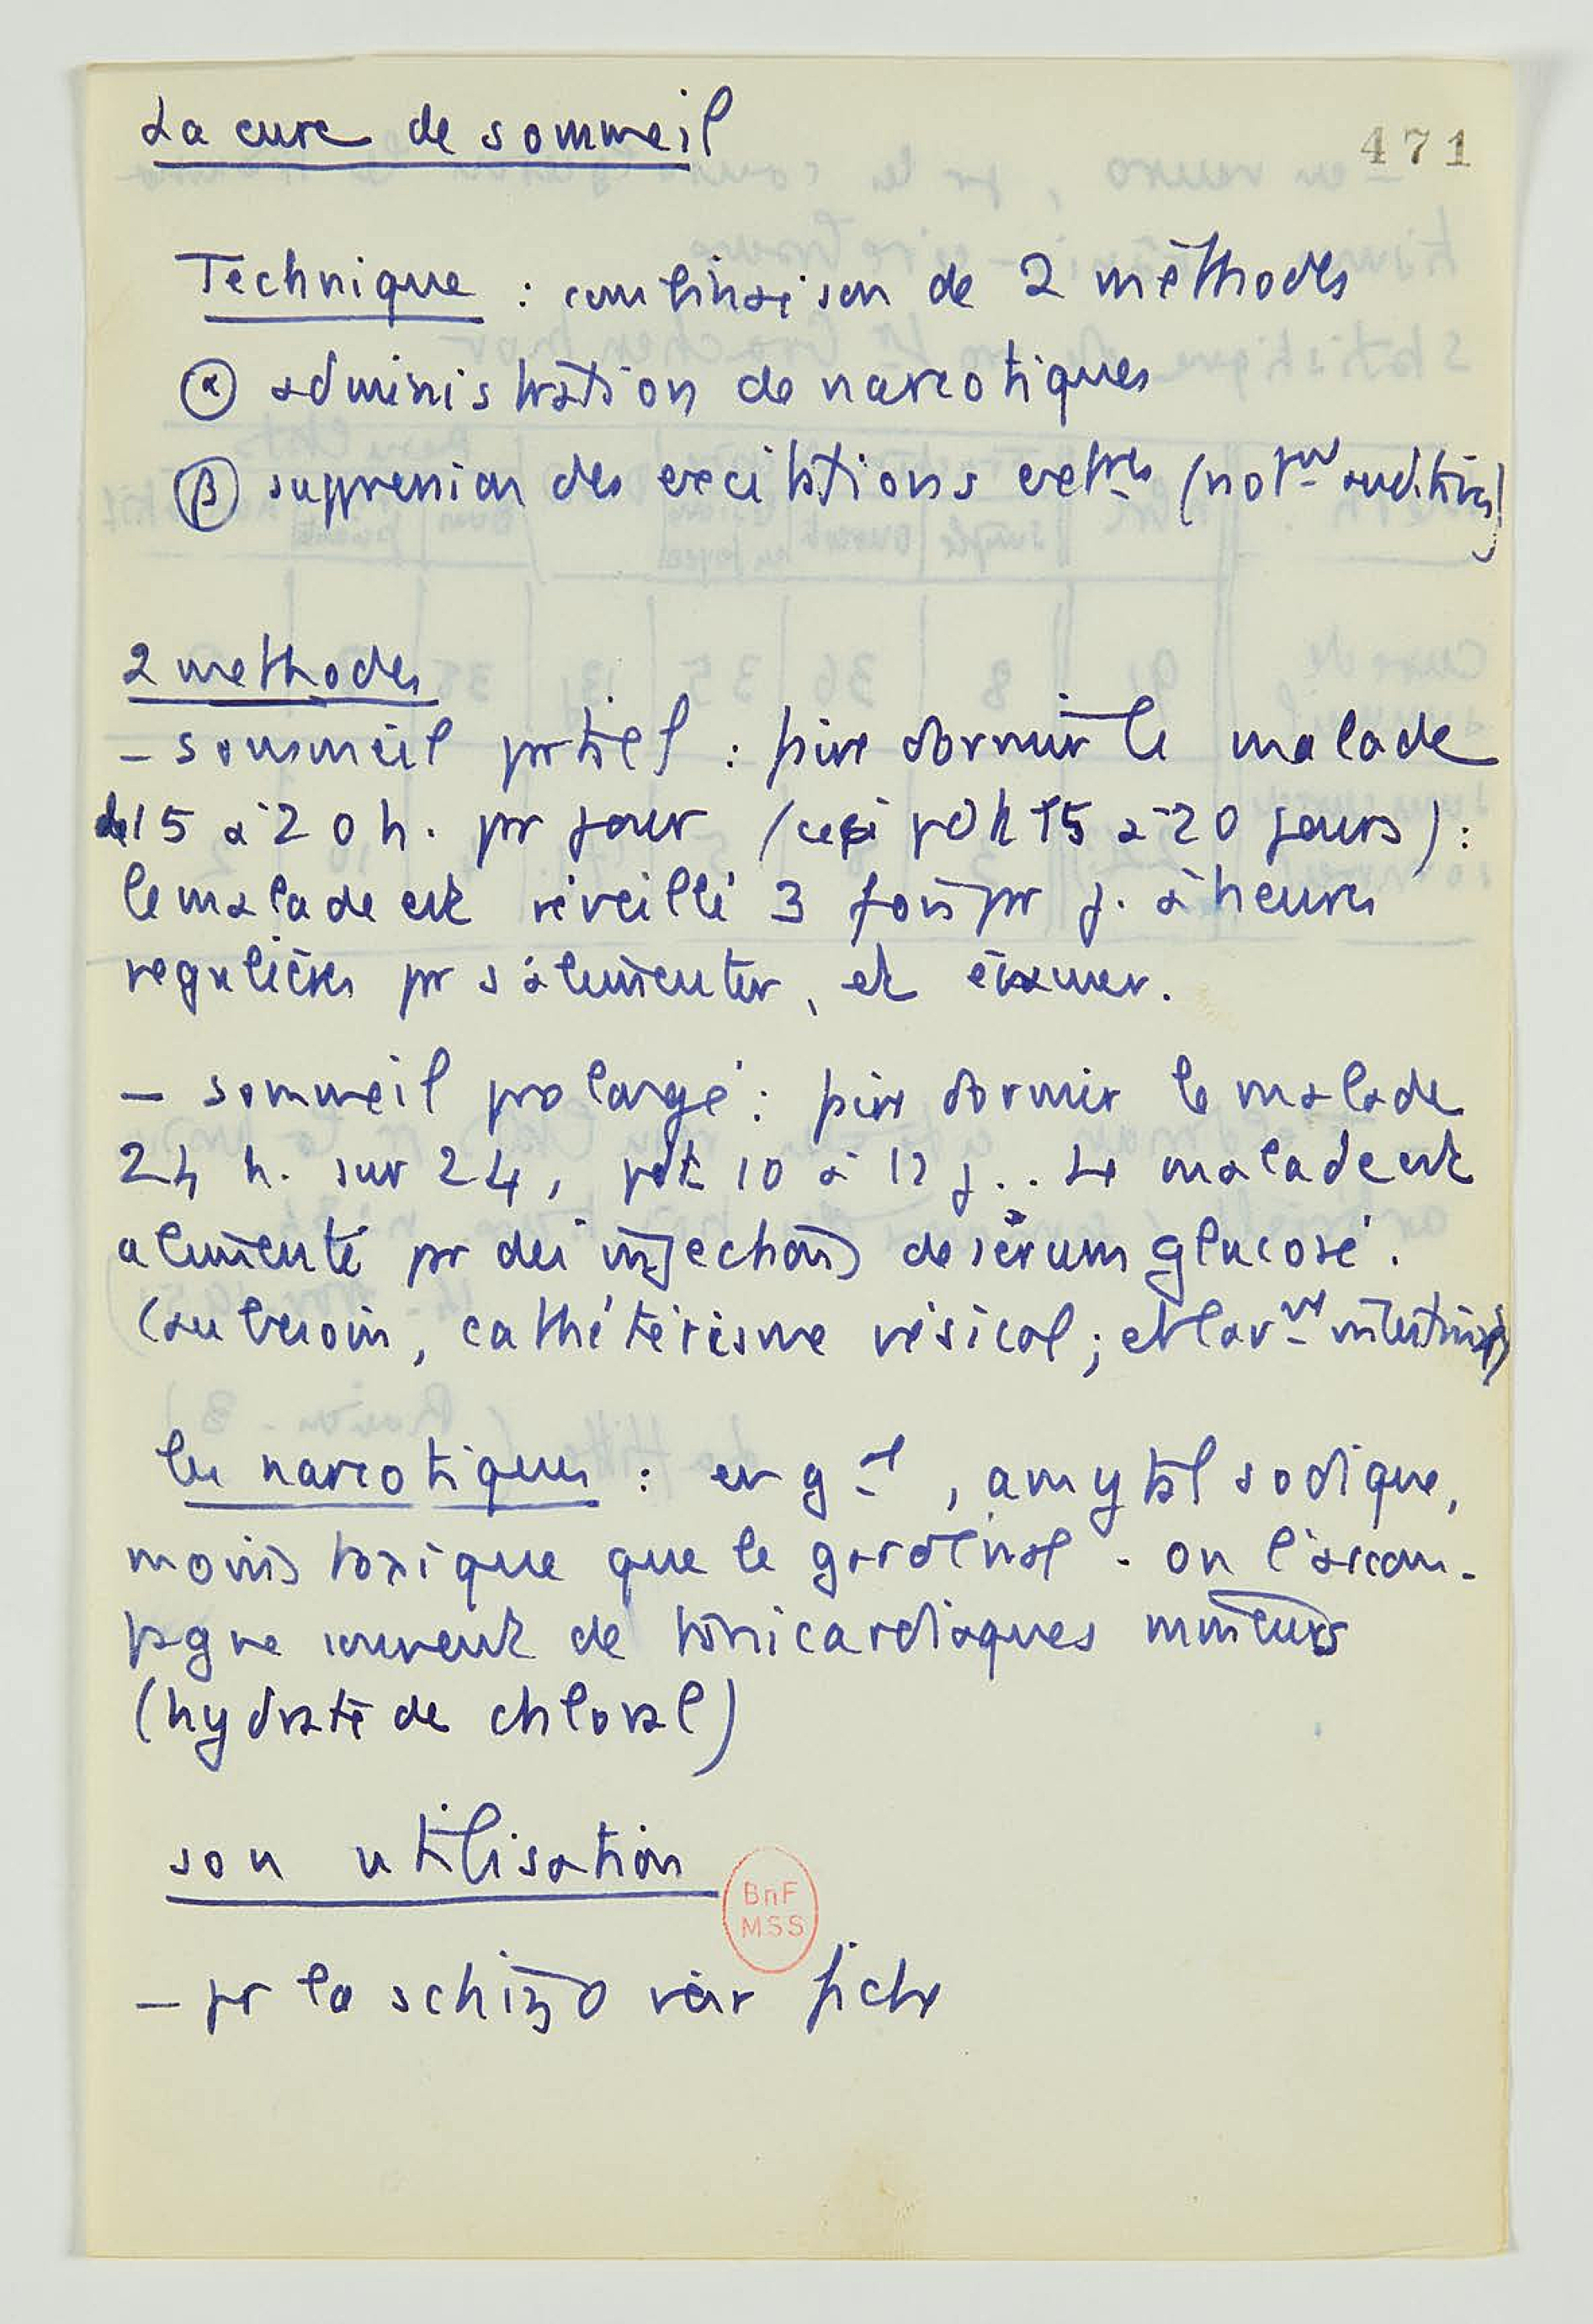 La cure de sommeil
471
Technique : combinaison de 2 méthodes
α administration de narcotiques
β suppression des excitations extres (notmt auditives)
2 methodes
– sommeil partiel : faire dormir le malade
de 15 à 20 h. pr jour (ceci pdt 15 à 20 jours) :
le malade est réveillé 3 fois pr j. à heures
regulières pr s'alimenter, et
– sommeil prolongé : faire dormir le malade
24 h. sur 24, pdt 10 à 12 j.. Le malade est
alimenté pr des injections de sérum glucosé.
(au besoin, cathétérisme vésical; et lavmt intestinal)
les narcotiques : en gal, amytal sodique,
moins toxique que le gardénal. on l'accom-
pagne souvent de tonicardiaques mineurs
(hydrate de chloral)
son utilisation
BnF
MSS
– pr la schizo voir fiche